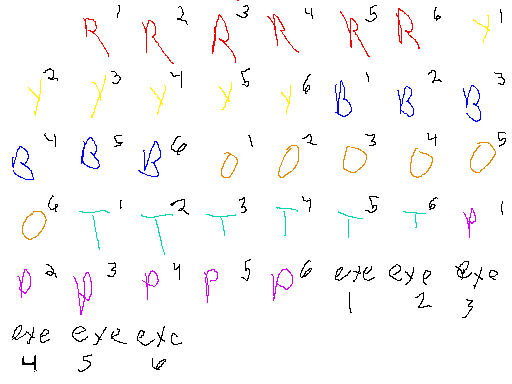 R1 R2 R3 R4 R5 R6 Y1
Y2 Y3 Y4 Y5 Y6 B1 B2 B3
B4 B5 B6 O1 O2 O3 O4 O5
O6 T1 T2 T3 T4 T5 T6 P1
P2 P3 P4 P5 P6 exe exe exe
1 2 3
exe exe exe
4 5 6